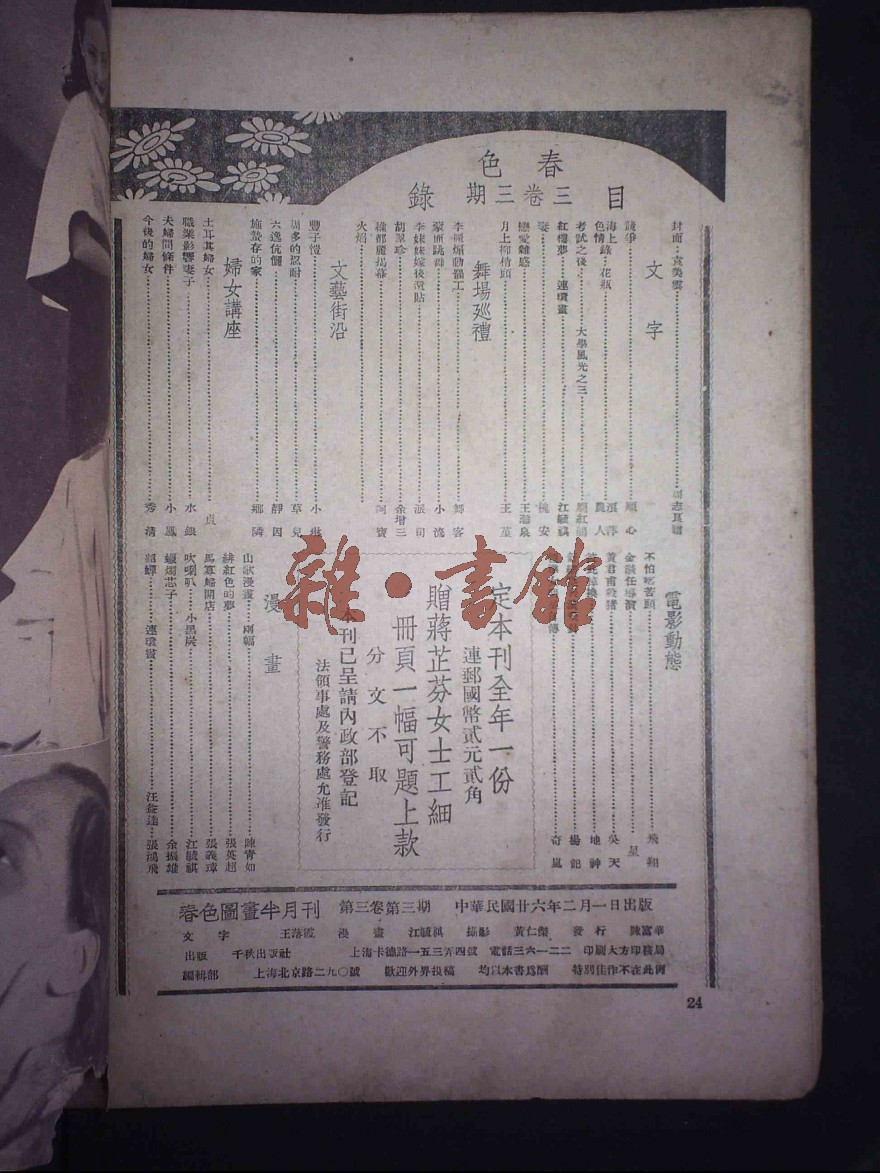 春色
三卷三期 目錄
文字
封面：袁美雲
競爭 心
海上錄 花瓶
色情 農人
考試之後 大學風光之三
紅樓夢 連環畫 江毓祺
安
戀愛雜感 王
月上柳梢頭 王
舞場巡禮
李 煽動罷工 舞客
蒙面跳舞 小
李妹妹嫁後 貼 派司
胡翠珍 余增三
揭幕 阿寶
火焰
文藝街沿
豐子愷 小
的忍耐 草兒
六逸伉儷 靜因
施蟄存的家 鄉隣
婦女講座
土耳其婦女 貞
職業影響妻子 水銀
夫婦間條件 小鳳
今後的婦女 秀清
電影動態
不怕吃苦頭 飛翔
金 任導演 星
黃君甫殺豬 吳天
地神
楊
奇
定本刊全年一份
連郵國幣貳元貳角
贈蔣芷芬女士工細
冊頁一幅可題上款
分文不取
本刊已呈請內政部登記
法領事處及警務處允准發行
漫畫
山歌漫畫 兩幅 陳青如
緋紅色的夢 張英超
馬寡婦開店 張義璋
吹喇叭 小黑炭 江毓祺
蠟燭芯子 余振雄
貂蟬 連環畫 汪 達 張鴻飛
春色圖畫半月刊 第三卷第三期 中華民國廿六年二月一日出版
文字 王落霞 漫畫 江毓祺 攝影 黃仁 發行 陳富華
出版 千秋出版社 上海卡德路一五三弄四號 電話三六一二二 印刷大方印務局
編輯部 上海北京路二九〇號 歡迎外界投稿 均以本書爲酬 特別佳作不在此例
24
雜·書館